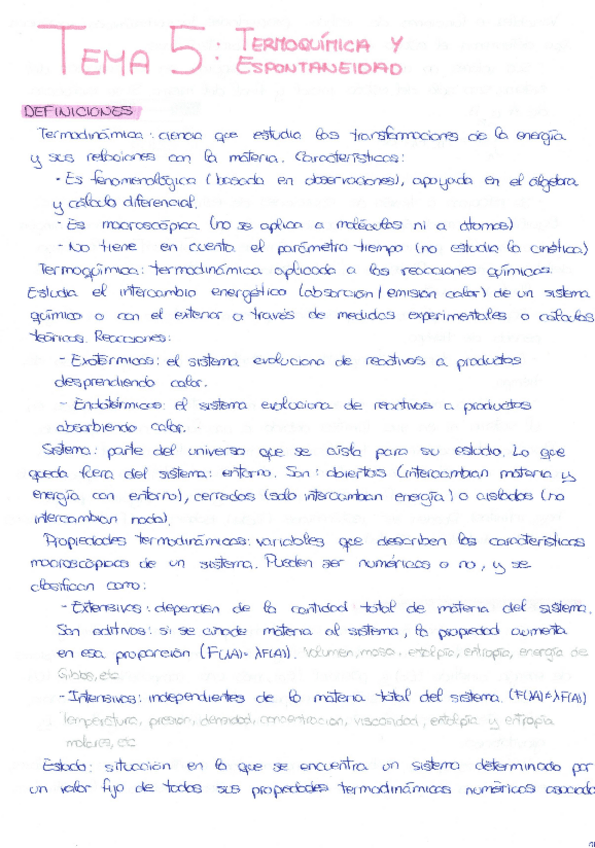 TEMA 5: TERMOQUÍMICA Y
ESPONTANEIDAD
DEFINICIONES
Termodinámica: ciencia que estudia las transformaciones de la energía
y sus relaciones con la materia. Características:
- Es fenomenológica (basada en observaciones), apoyada en el álgebra
y cálculo diferencial.
- Es macroscópica (no se aplica a moléculas ni a átomos)
- No tiene en cuenta el parámetro tiempo (no estudia la cinética)
Termoquímica: termodinámica aplicada a las reacciones químicas.
Estudia el intercambio energético (absorción/emisión calor) de un sistema
químico o con el exterior a través de medidas experimentales o cálculos
teóricos. Reacciones:
- Exotérmicas: el sistema evoluciona de reactivos a productos
desprendiendo calor.
- Endotérmicas: el sistema evoluciona de reactivos a productos
absorbiendo calor.
Sistema: parte del universo que se aísla para su estudio. Lo que
queda fuera del sistema: entorno. Son: abiertos (intercambian materia y
energía con entorno), cerrados (solo intercambian energía) o aislados (no
intercambian nada).
Propiedades termodinámicas: variables que describen las características
macroscópicas de un sistema. Pueden ser numéricas o no, y se
clasifican como:
- Extensivas: dependen de la cantidad total de materia del sistema.
Son aditivas: si se añade materia al sistema, la propiedad aumenta
en esa proporción (F(λA)= λF(A)). Volumen, masa, entalpía, entropía, energía de
Gibbs, etc
- Intensivas: independientes de la materia total del sistema. (F(λA)≠λF(A))
Temperatura, presión, densidad, concentración, viscosidad, entalpía y entropía
molares, etc
Estado: situación en la que se encuentra un sistema determinado por
un valor fijo de todas sus propiedades termodinámicas numéricas